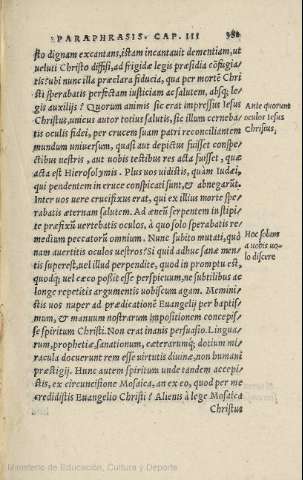 PARAPHRASIS. CAP. III 381
sto dignam excantans, istam incantauit dementiam, ut
ueluti Christo diffisi, ad frigidæ legis præsidia cōfugia=
tis? ubi nunc illa præclara fiducia, qua per mortē Chri
sti sperabatis perfectam iusticiam ac salutem, absq; le=
gis auxilijs? Quorum animis sic erat impressus Iesus
Christus, unicus autor totius salutis, sic illum cerneba=
tis oculis fidei, per crucem suam patri reconciliantem
mundum uniuersum, quasi aut depictus fuisset conspe=
ctibus uestris, aut uobis testibus res acta fuisset, quæ
acta est Hierosolymis. Plus uos uidistis, quàm Iudæi,
qui pendentem in cruce conspicati sunt, & abnegarūt.
Inter uos uere crucifixus erat, qui ex illius morte spe=
rabatis æternam salutem. Ad æneū serpentem in stipi=
te præfixū uertebatis oculos, à quo solo sperabatis re=
medium peccatorū omnium. Nunc subito mutati, quò
nam auertitis oculos uestros? Si quid adhuc sanæ men=
tis superest, uel illud perpendite, quod in promptu est,
quodq; uel cæco possit esse perspicuum, ne subtilibus ac
longe repetitis argumentis uobiscum agam. Memini=
stis uos nuper ad prædicationē Euangelij per baptis=
mum, & manuum nostrarum impositionem concepis=
se spiritum Christi. Non erat inanis persuasio. Lingua=
rum, prophetiæ, sanationum, cæterarumq; dotium mi=
racula docuerunt rem esse uirtutis diuinæ, non humani
præstigij. Hunc autem spiritum unde tandem accepi=
stis, ex circuncisione Mosaica, an ex eo, quod per me
credidistis Euangelio Christi? Alienis à lege Mosaica
Christus
Ante quorum
oculos Iesus
Christus,
Hoc solum
à uobis uo=
lo discere
Ministerio de Educación, Cultura y Deporte